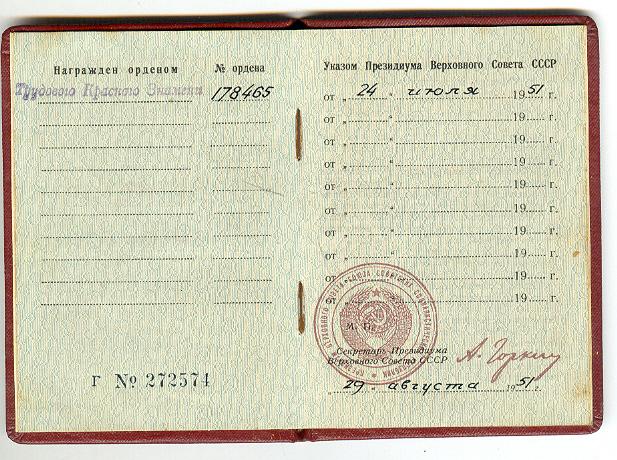 Награжден орденом
№ ордена
Трудового Красного Знамени
178465
Г № 272574
Указом Президиума Верховного Совета СССР
от „ 24 " июля 1951 г.
от „ " 19 г.
от „ " 19 г.
от „ " 19 г.
от „ " 19 г.
от „ " 19 г.
от „ " 19 г.
от „ " 19 г.
от „ " 19 г.
от „ " 19 г.
М. П.
Секретарь Президиума
Верховного Совета СССР
А. Горкин
„ 29 " августа 1951 г.